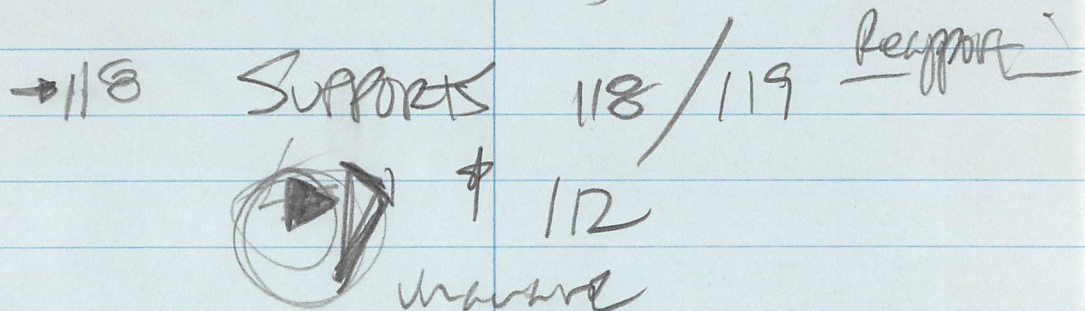 →118 SUPPORTS 118/119 Reapport
112